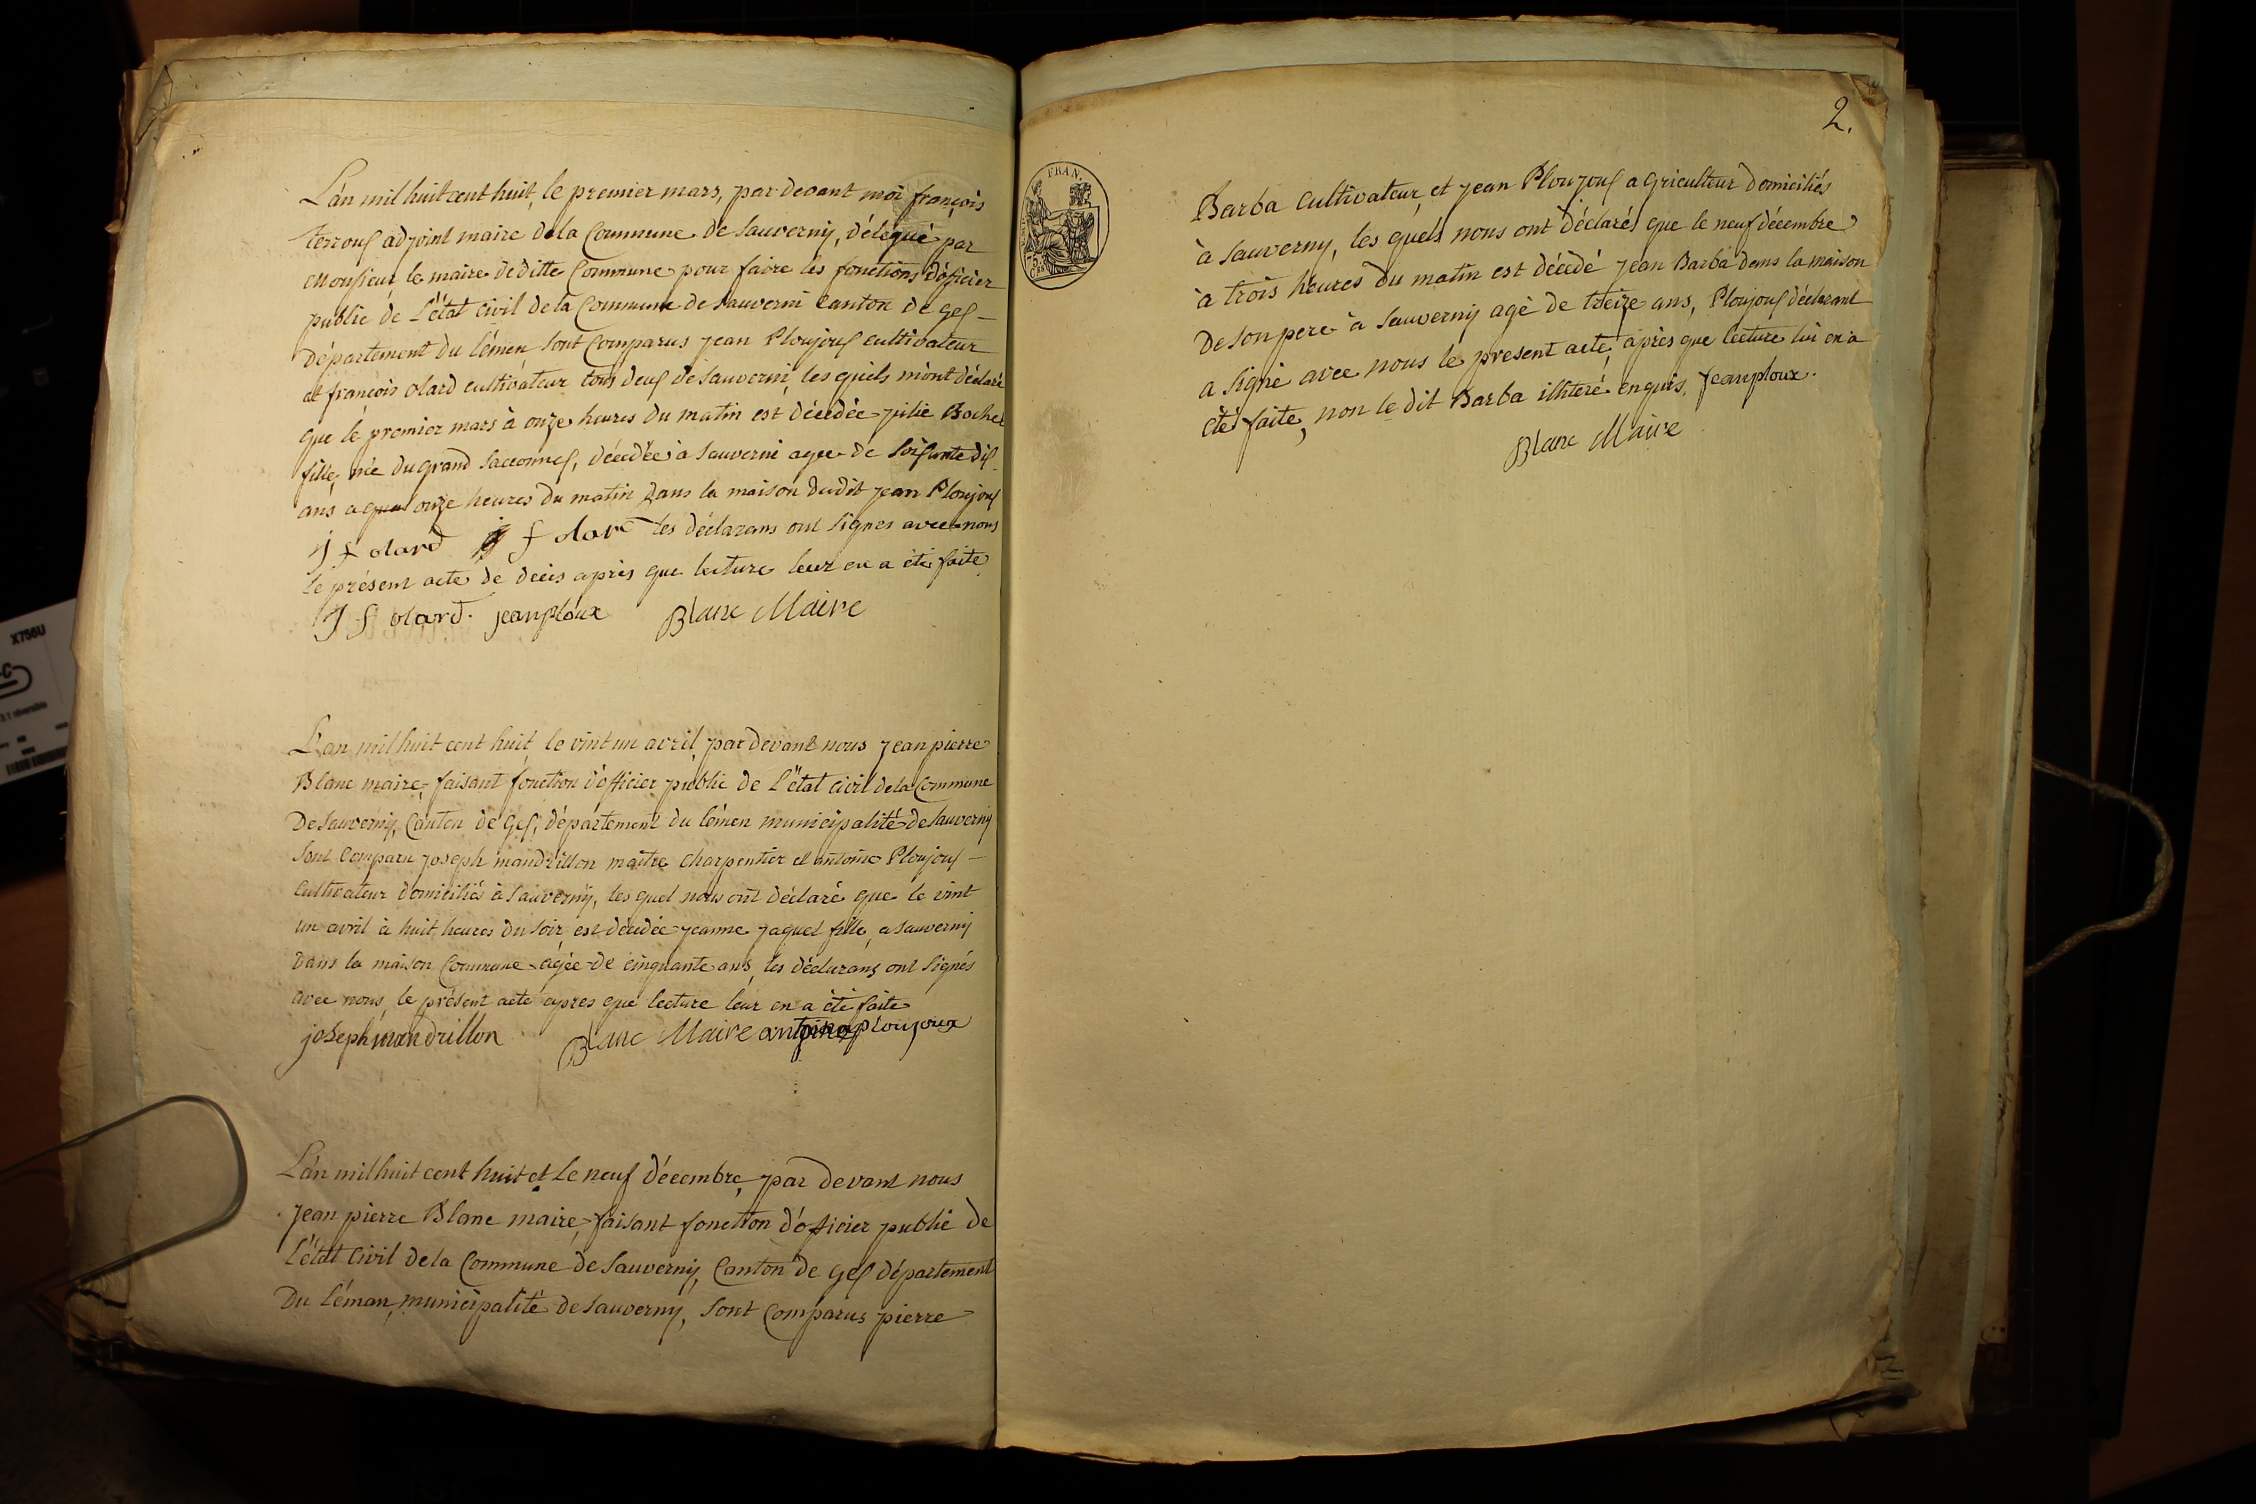 L'an mil huit cent huit, le premier mars, par devant moi françois
terrouf adjoint maire de la Commune de Sauverny, délégué par
Monsieur le maire de ditte Commune pour faire les fonctions d'oficier
public de L'état Civil de la Commune de Sauverni Canton de gef –
Département du lémen sont Comparus jean Ploujouf cultivateur
et françois olard cultivateur tous deuf de Sauverni, les quels m'ont déclaré
que le premier mars à onze heures du matin est décédée julie Boche
fille, née du grand Sacconnef, décédée à Sauverni agee de Soifante dif
ans a onze heures du matin Dans la maison dudit jean Ploujouf
J f olard f olar les déclarans ont Signes avec nous
le présent acte de décis après que lecture leur en a été faite
J f olard. jean ploux Blanc Maire
L'an mil huit cent huit le vint un avril par devant nous jean pierre
Blanc maire, faisant fonction d'officier public de L'état civil de la Commune
De Sauverny, Canton de Gef, département du lémen municipalité de Sauverny
Sont Comparu joseph mandrillon maitre charpentier et antoine Ploujouf –
Cultivateur domiciliés à Sauverny, les quel nous ont déclaré que le vint
un avril à huit heures du soir est décédée jeanne jaquet fille, a Sauverny
Dans la maison Commune agée de cinquante ans, les déclarans ont signés
avec nous, le présent acte apres que lecture leur en a été faite
joseph mandrillon Blanc Maire antoine ploujoux
L'an mil huit cent huit et le neuf décembre, par devant nous
Jean pierre Blanc maire, faisant fonction d'officier public de
L'état Civil de la Commune de Sauverny, Canton de gef département
Du léman, municipalité de Sauverny, Sont Comparus pierre
2.
FRAN.
Barba Cultivateur, et jean Ploujouf agriculteur domiciliés
à Sauverny, les quels nous ont déclarés que le neuf décembre
à trois heures du matin est décédé jean Barba dans la maison
De son pere à Sauverny agé de treize ans, Ploujouf déclarant
a signé avec nous le present acte, après que lecture lui en a
été faite, non le dit Barba illiteré enquis, jean ploux.
Blanc Maire